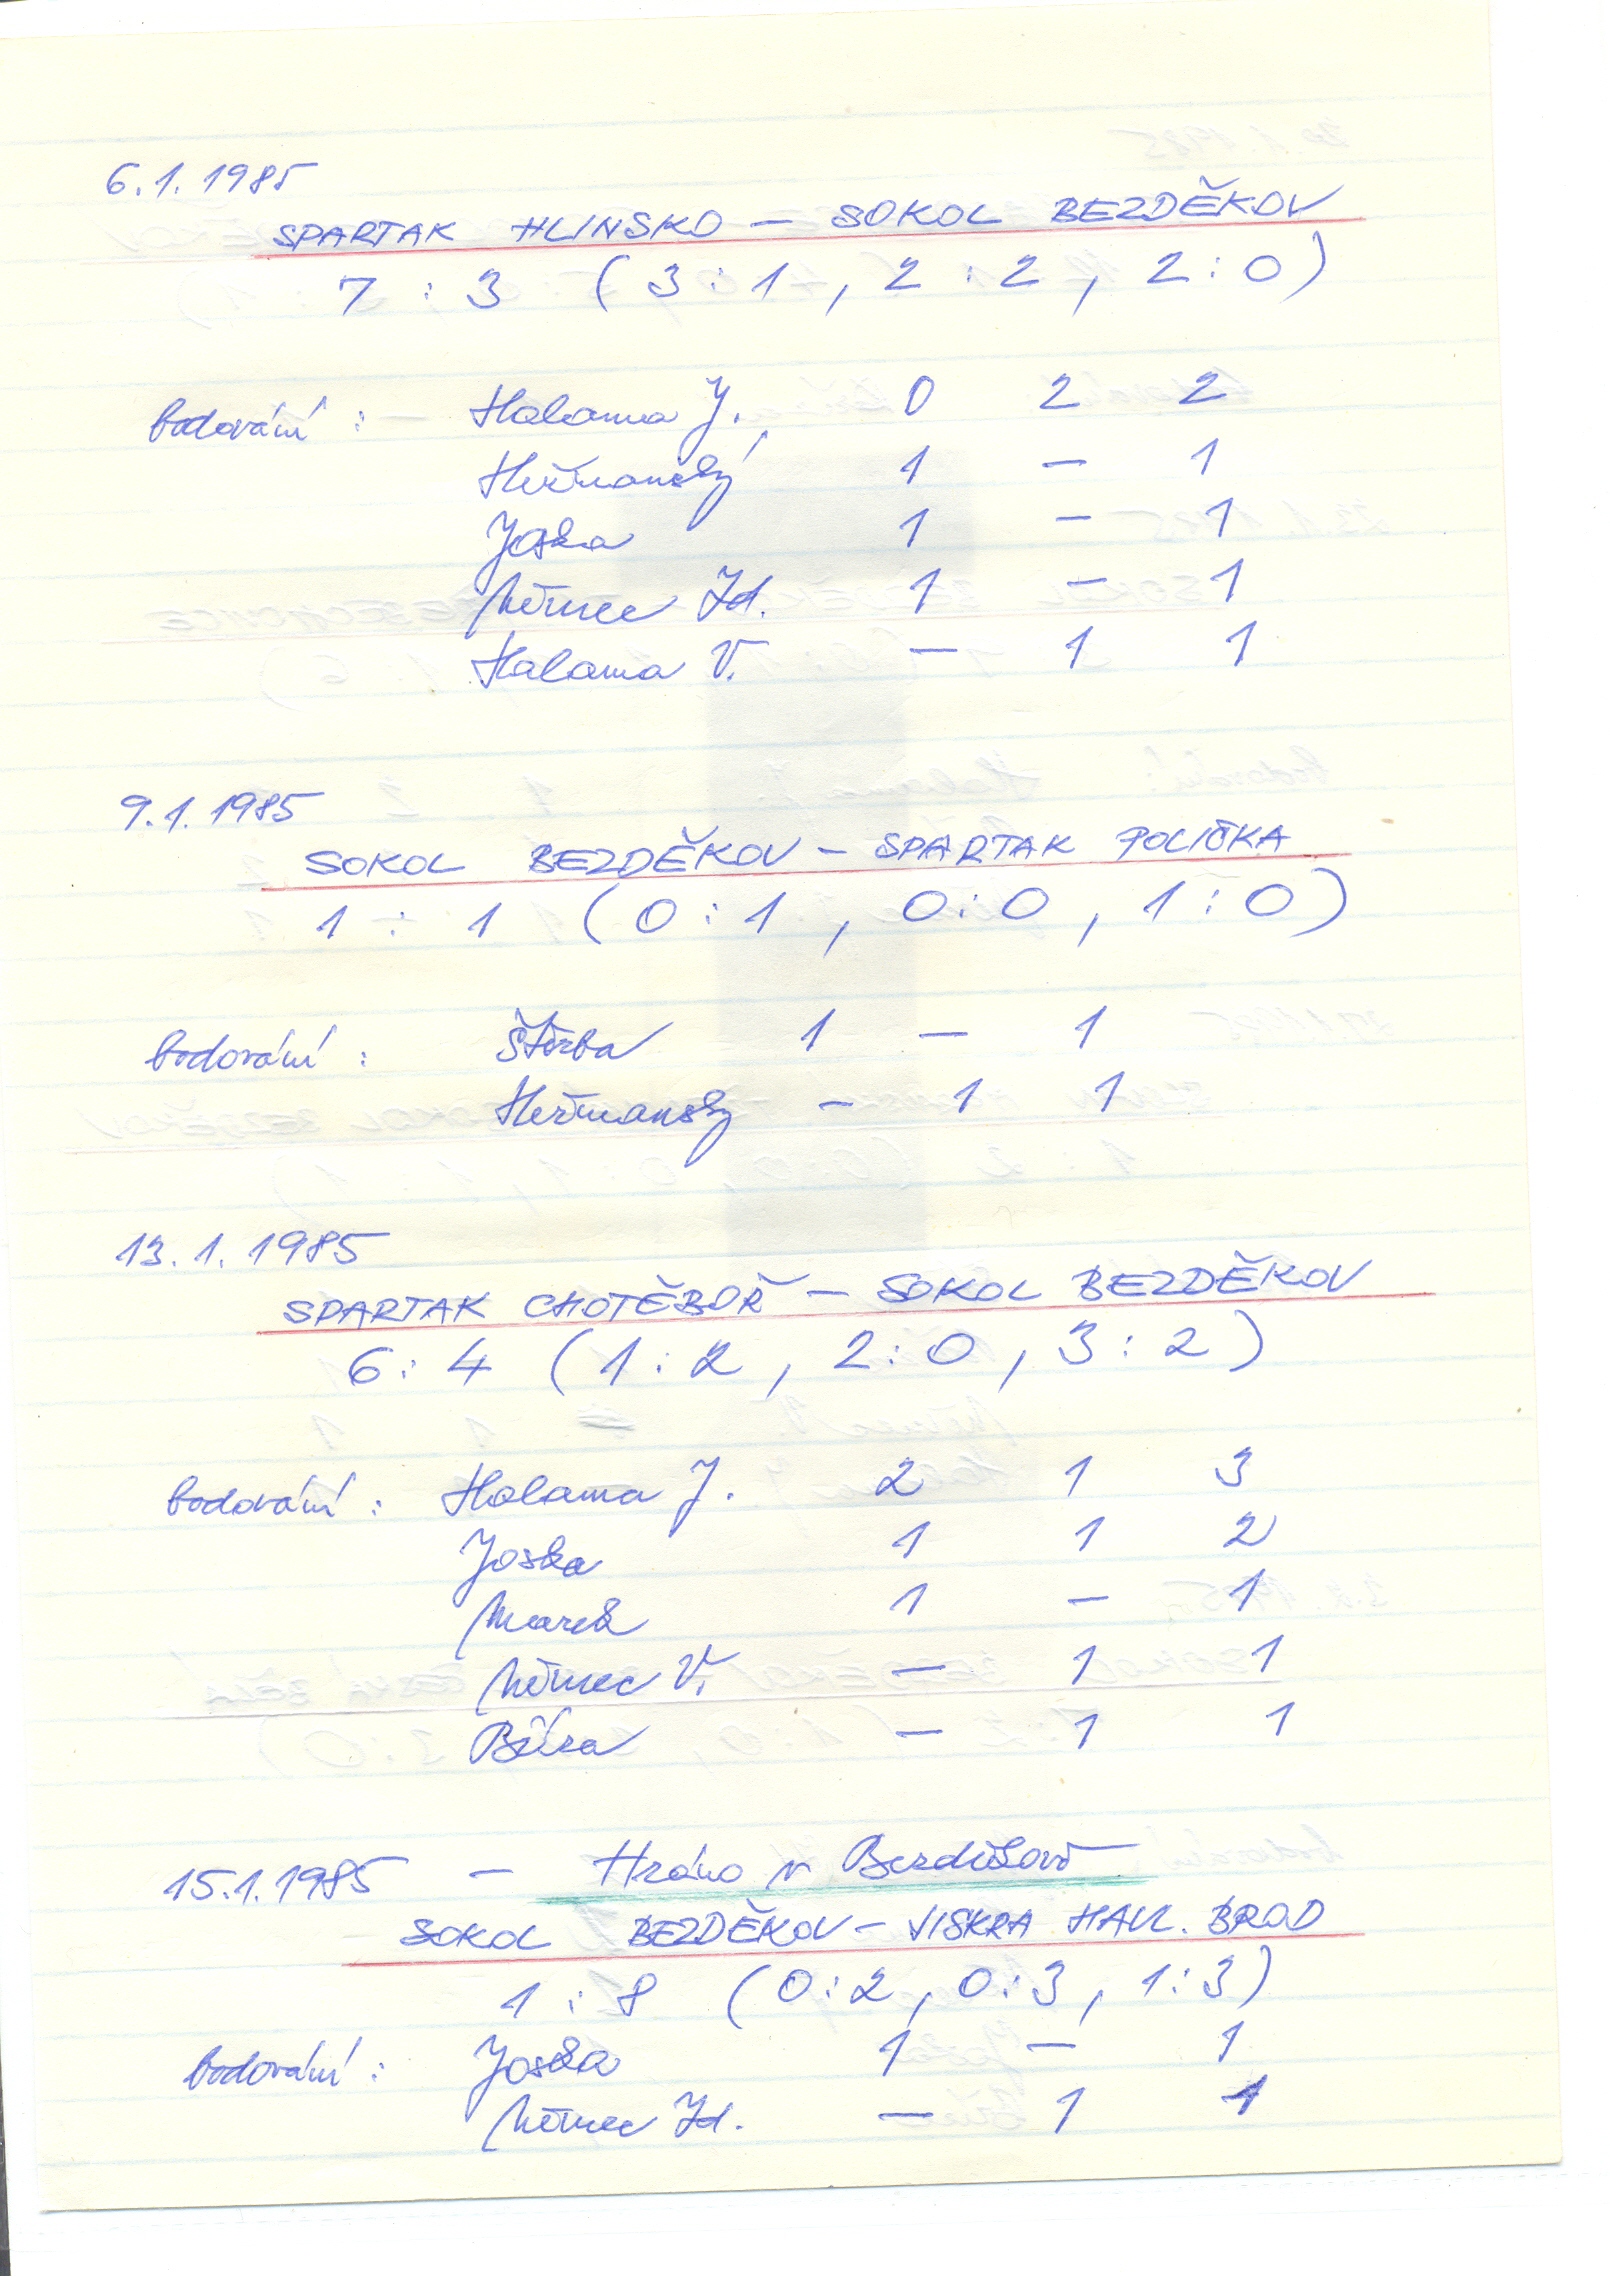 6.1.1985
SPARTAK HLINSKO – SOKOL BEZDĚKOV
7 : 3 ( 3 : 1 , 2 : 2 , 2 : 0 )
bodování : Halama J. 0 2 2
Heřmanský 1 – 1
Joska 1 – 1
Němec Zd. 1 – 1
Halama V. – 1 1
9.1.1985
SOKOL BEZDĚKOV – SPARTAK POLIČKA
1 : 1 ( 0 : 1 , 0 : 0 , 1 : 0 )
bodování : Štěrba 1 – 1
Heřmanský – 1 1
13.1.1985
SPARTAK CHOTĚBOŘ – SOKOL BEZDĚKOV
6 : 4 ( 1 : 2 , 2 : 0 , 3 : 2 )
bodování : Halama J. 2 1 3
Joska 1 1 2
Marek 1 – 1
Němec V. – 1 1
– 1 1
15.1.1985 – Hráno v Bezděkově
SOKOL BEZDĚKOV – JISKRA HAVL. BROD
1 : 8 ( 0 : 2 , 0 : 3 , 1 : 3 )
bodování : Joska 1 – 1
Němec Zd. – 1 1